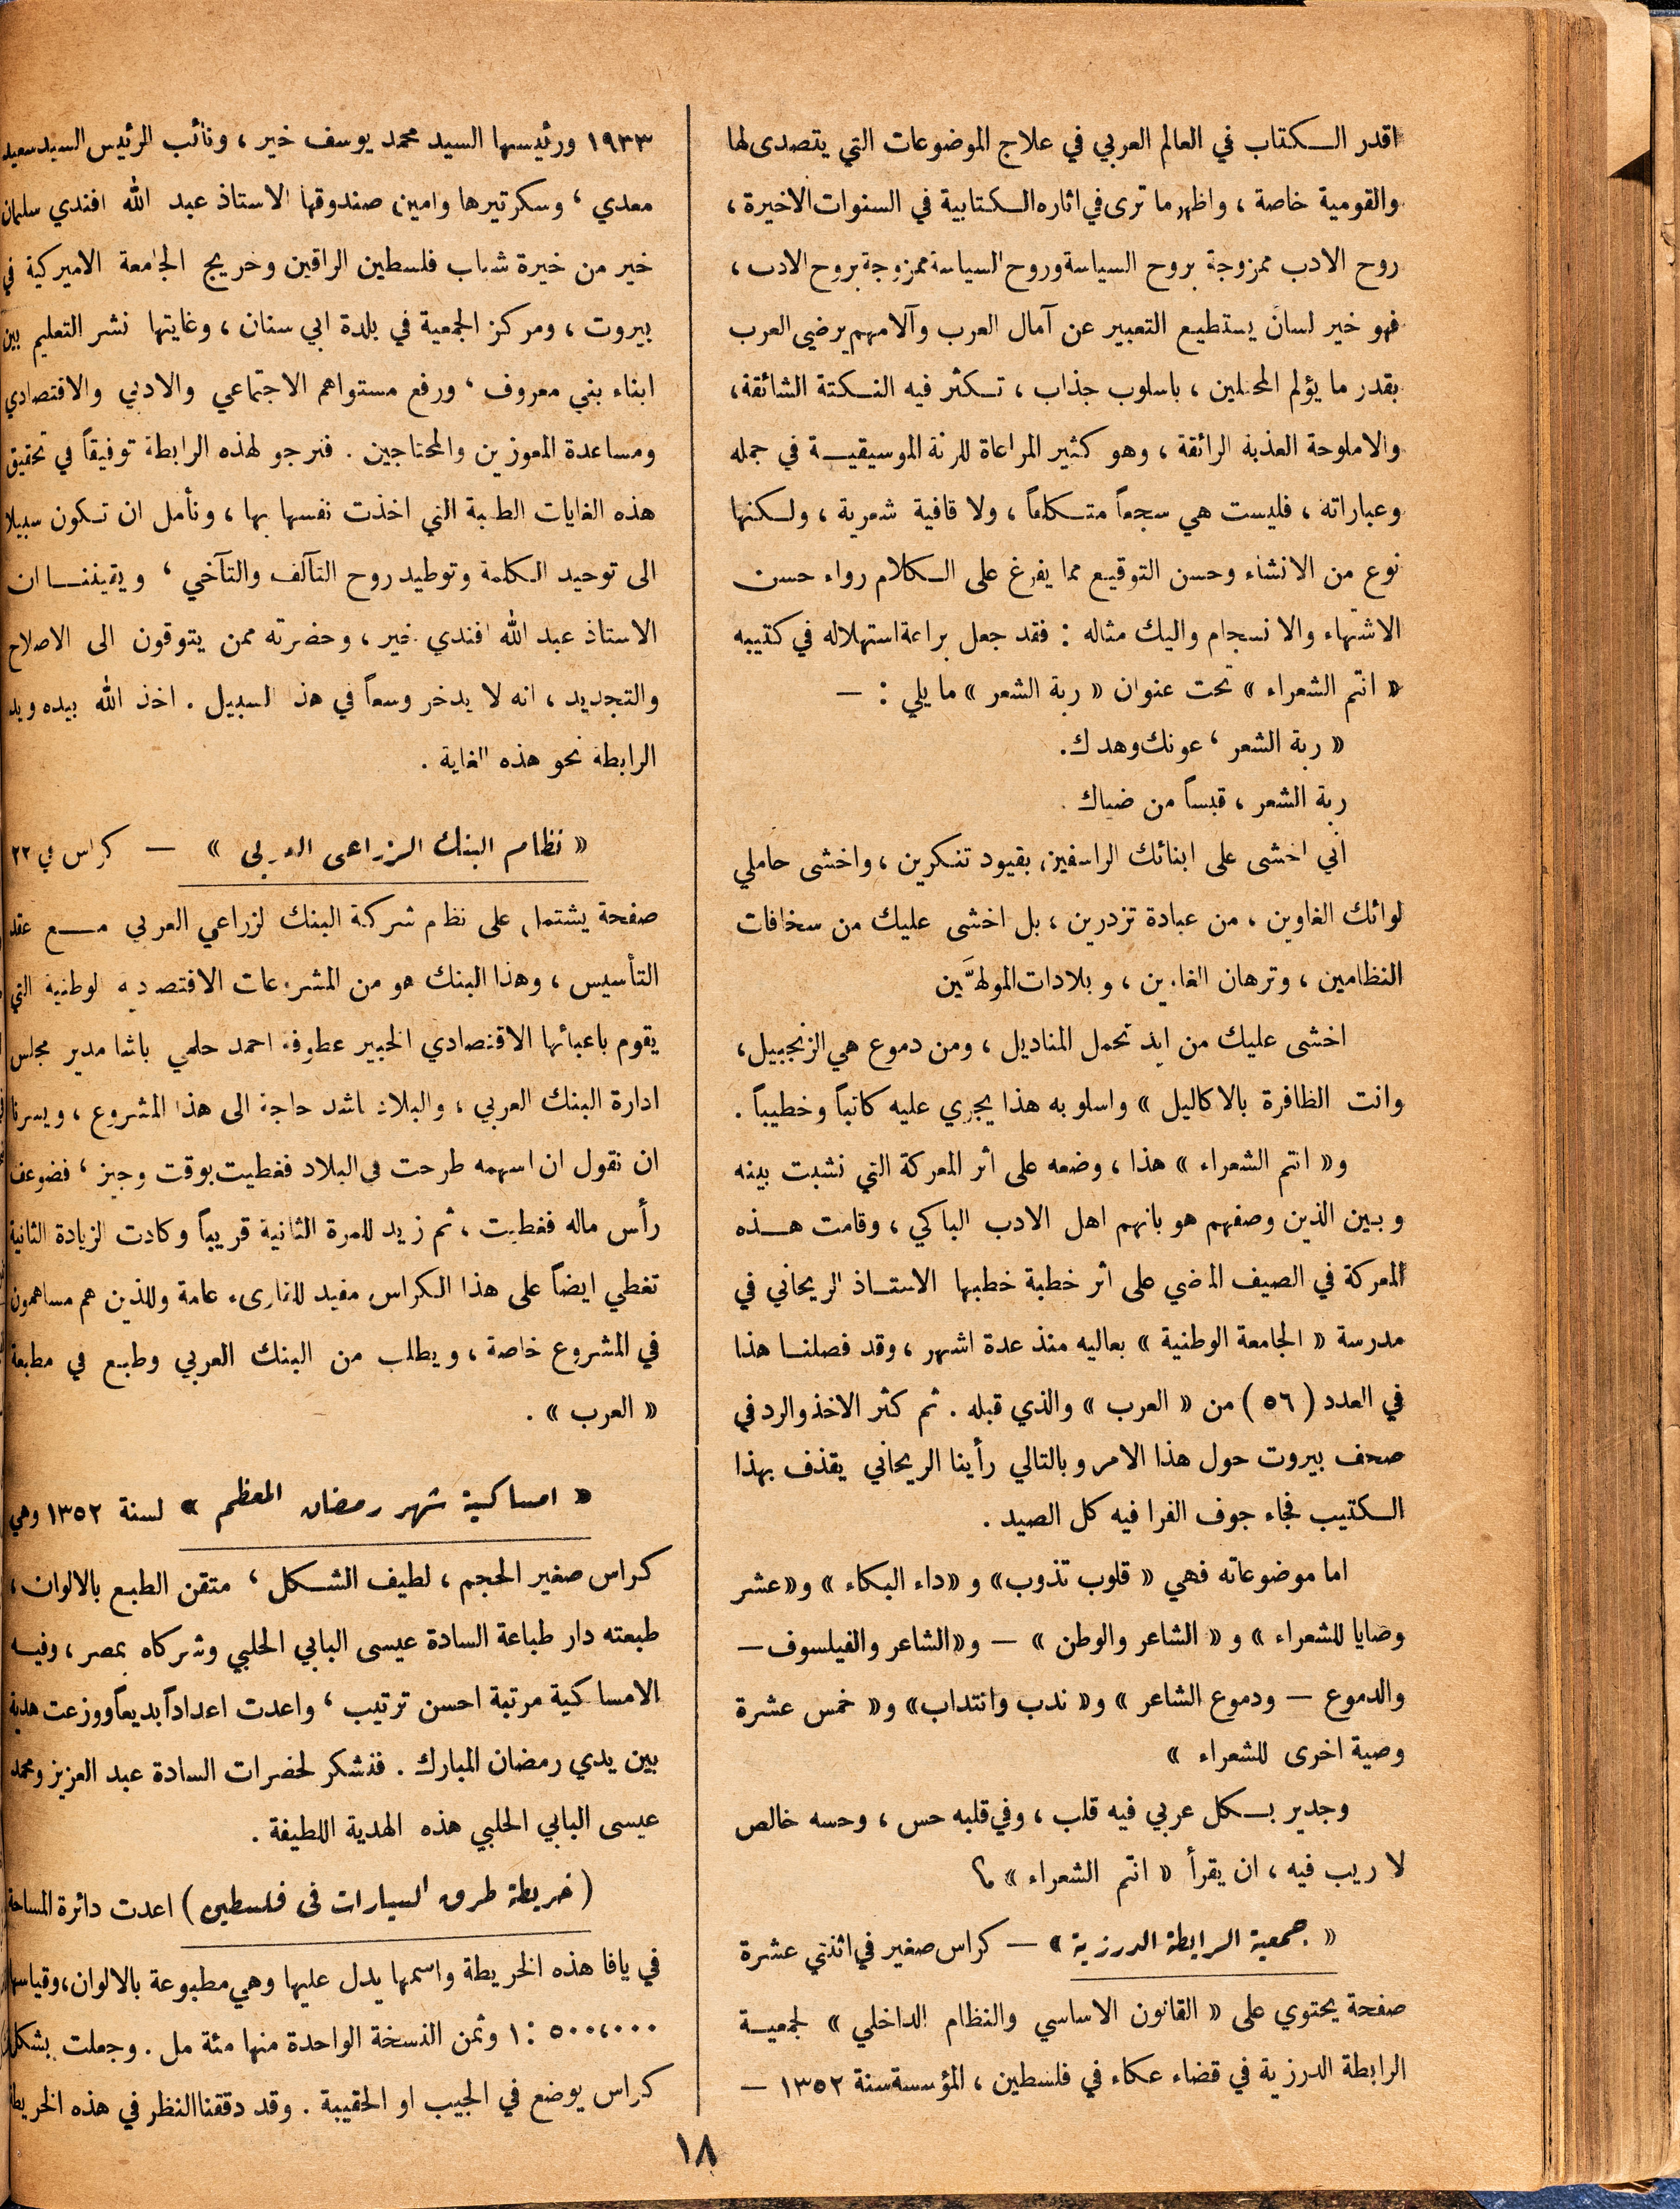 اقدر الكتاب في العالم العربي في علاج الموضوعات التي يتصدى لها
والقومية خاصة ، واظهر ما ترى في اثاره الكتابية في السنوات الاخيرة ،
روح الادب ممزوجة بروح السياسة وروح السياسة ممزوجة بروح الادب ،
فهو خير لسان يستطيع التعبير عن آمال العرب وآلامهم يرضي العرب
بقدر ما يؤلم المحتلين ، باسلوب جذاب ، تكثر فيه النكتة الشائقة ،
والاملوحة العذبة الرائقة ، وهو كثير المراعاة للرنة الموسيقية في جمله
وعباراته ، فليست هي سجعاً متكلفاً ، ولا قافية شعرية ، ولكنها
نوع من الانشاء وحسن التوقيع مما يفرغ على الكلام رواء حسن
الاشتهاء والانسجام واليك مثاله : فقد جعل براعة استهلاله في كتيبه
« انتم الشعراء » تحت عنوان « ربة الشعر » ما يلي : —
« ربة الشعر ، عونك وهداك .
ربة الشعر ، قبساً من ضياك .
اني اخشى على ابنائك الراسفين بقيود تنكرين ، واخشى حاملي
لوائك الغاوين ، من عبادة تزدرين ، بل اخشى عليك من سخافات
النظامين ، وترهان الغاوين ، وبلادات المولهَّين
اخشى عليك من ايد تحمل المناديل ، ومن دموع هي الزنجبيل ،
وانت الظافرة بالاكاليل » واسلوبه هذا يجري عليه كاتباً وخطيباً .
و« انتم الشعراء » هذا ، وضعه على اثر المعركة التي نشبت بينه
وبين الذين وصفهم هو بانهم اهل الادب الباكي ، وقامت هذه
المعركة في الصيف الماضي على اثر خطبة خطبها الاستاذ الريحاني في
مدرسة « الجامعة الوطنية » بعاليه منذ عدة اشهر ، وقد فصلنا هذا
في العدد ( ٥٦ ) من « العرب » والذي قبله . ثم كثر الاخذ والرد في
صحف بيروت حول هذا الامر وبالتالي رأينا الريحاني يقذف بهذا
الكتيب فجاء جوف الفرا فيه كل الصيد .
اما موضوعاته فهي « قلوب تذوب » و « داء البكاء » و« عشر
وصايا للشعراء » و « الشاعر والوطن » — و« الشاعر والفيلسوف —
والدموع — ودموع الشاعر » و« ندب وانتداب » و« خمس عشرة
وصية اخرى للشعراء »
وجدير بكل عربي فيه قلب ، وفي قلبه حس ، وحسه خالص
لا ريب فيه ، ان يقرأ « انتم الشعراء » ؟
« جمعية الرابطة الدرزية » — كراس صغير في اثنتي عشرة
صفحة يحتوي على « القانون الاساسي والنظام الداخلي » لجمعية
الرابطة الدرزية في قضاء عكاء في فلسطين ، المؤسسة سنة ١٣٥٢ —
١٩٣٣ ورئيسها السيد محمد يوسف خير ، ونائب الرئيس السيد سعيد
معدي ، وسكرتيرها وامين صندوقها الاستاذ عبد الله افندي سليمان
خير من خيرة شباب فلسطين الراقين وخريج الجامعة الاميركية في
بيروت ، ومركز الجمعية في بلدة ابي سنان ، وغايتها نشر التعليم بين
ابناء بني معروف ، ورفع مستواهم الاجتماعي والادبي والاقتصادي
ومساعدة المعوزين والمحتاجين . فنرجو لهذه الرابطة توفيقاً في تحقيق
هذه الغايات الطيبة التي اخذت نفسها بها ، ونأمل ان تكون سبيلا
الى توحيد الكلمة وتوطيد روح التآلف والتآخي ، ويقيننا ان
الاستاذ عبد الله افندي خير ، وحضرته ممن يتوقون الى الاصلاح
والتجديد ، انه لا يدخر وسعاً في هذا السبيل . اخذ الله بيده ويد
الرابطة نحو هذه الغاية .
« نظام البنك الزراعي العربي » — كراس في ٢٢
صفحة يشتمل على نظام شركة البنك الزراعي العربي مع عقد
التأسيس ، وهذا البنك هو من المشروعات الاقتصادية الوطنية التي
يقوم باعبائها الاقتصادي الخبير عطوفة احمد حلمي باشا مدير مجلس
ادارة البنك العربي ، والبلاد باشد حاجة الى هذا المشروع ، ويسرنا
ان نقول ان اسهمه طرحت في البلاد فغطيت بوقت وجيز ، فضوعف
رأس ماله فغطيت ، ثم زيد للمرة الثانية قريباً وكادت الزيادة الثانية
تغطي ايضاً على هذا الكراس مفيد للقارىء عامة وللذين هم مساهمون
في المشروع خاصة ، ويطلب من البنك العربي وطبع في مطبعة
« العرب » .
« امساكية شهر رمضان المعظم » لسنة ١٣٥٢ وهي
كراس صغير الحجم ، لطيف الشكل ، متقن الطبع بالالوان ،
طبعته دار طباعة السادة عيسى البابي الحلبي وشركاه بمصر ، وفيه
الامساكية مرتبة احسن ترتيب ، واعدت اعداداً بديعاً ووزعت هدية
بين يدي رمضان المبارك . فنشكر لحضرات السادة عبد العزيز ومحمد
عيسى البابي الحلبي هذه الهدية اللطيفة .
( خريطة طرق السيارات في فلسطين ) اعدت دائرة المساحة
في يافا هذه الخريطة واسمها يدل عليها وهي مطبوعة بالالوان ، وقياسها
٥٠٠،٠٠٠ : ١ وثمن النسخة الواحدة منها مئة مل . وجعلت بشكل
كراس يوضع في الجيب او الحقيبة . وقد دققنا النظر في هذه الخريطة
١٨